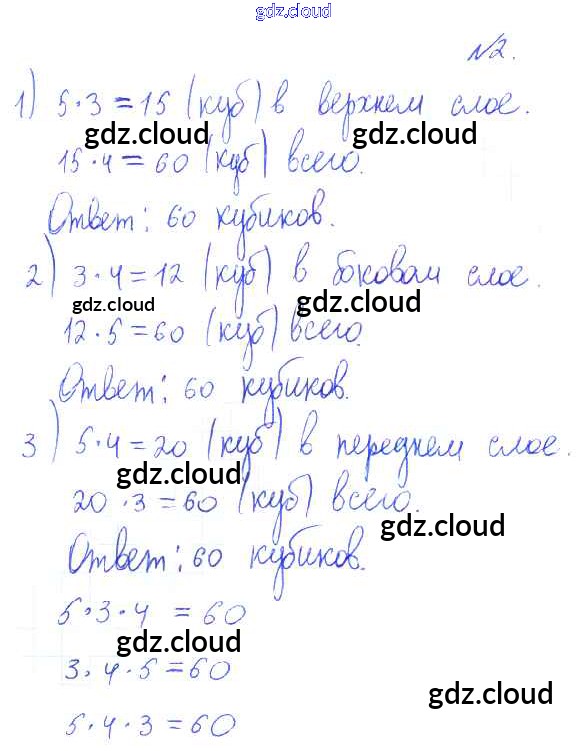 gdz.cloud
№2.
1) 5·3=15 (куб) в верхнем слое.
gdz.cloud gdz.cloud
15·4=60 (куб) всего.
Ответ: 60 кубиков.
2) 3·4=12 (куб) в боковом слое.
gdz.cloud gdz.cloud
12·5=60 (куб) всего.
Ответ: 60 кубиков.
3) 5·4=20 (куб) в переднем слое.
gdz.cloud
20·3=60 (куб) всего.
gdz.cloud
Ответ: 60 кубиков.
5·3·4=60
gdz.cloud
3·4·5=60
gdz.cloud
5·4·3=60